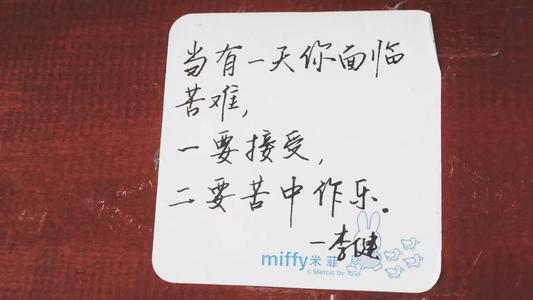 当有一天你面临
苦难,
一要接受,
二要苦中作乐。
—李健
miffy米菲
© Mercis bv